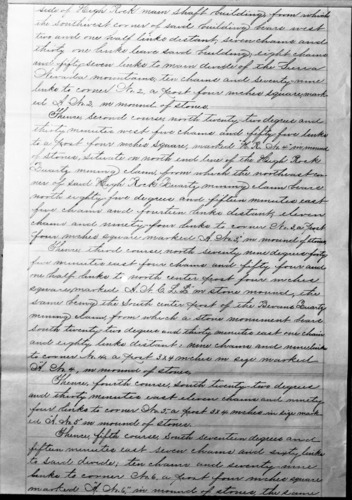 side of High Rock main shaft building from which
the southwest corner of said building bears west
two and one half links distant, seven chains and
thirty one links leave said building eight chains
and fifty seven links to main divide of the Sierra
Nevada mountains, ten chains and seventy nine
links to corner No. 2, a post four inches square, mark
ed A. No. 2. in mound of stone.
Thence, second course, north twenty two degrees and
thirty minutes west five chains and fifty five links
to a post four inches square, marked H. R. in mound
of stones, situate in north end line of the High Rock
Quartz mining claim from which the northeast cor
ner of said High Rock Quartz mining claim bears
north eighty five degrees and fifteen minutes east
five chains and fourteen links distant, eleven
chains and ninety four links to corner No. 3, a post
four inches square marked A. No. 3 in mound of stones.
Thence third course, north seventy nine degrees forty
five minutes east four chains and fifty four and
one half links to north center post four inches
square, marked A. N. C. in stone mound, the
same being the South center post of the Quartz
mining claim from which a stone monument bears
South twenty two degrees and thirty minutes east one chain
and eighty links distant; nine chains and nine links
to corner No. 4, a post 3x4 inches in size marked
A. No. 4, in mound of stone.
Thence, fourth course, south twenty two degrees
and thirty minutes east eleven chains and ninety
four links to corner No. 5, a post 3x4 inches in size mark
ed A. No. 5 in mound of stones.
Thence, fifth course South seventeen degrees and
fifteen minutes east seven chains and sixty links
to said divide, ten chains and seventy nine
links to corner No. 6, a post four inches square
marked A. No. 6 in mound of stones, the same